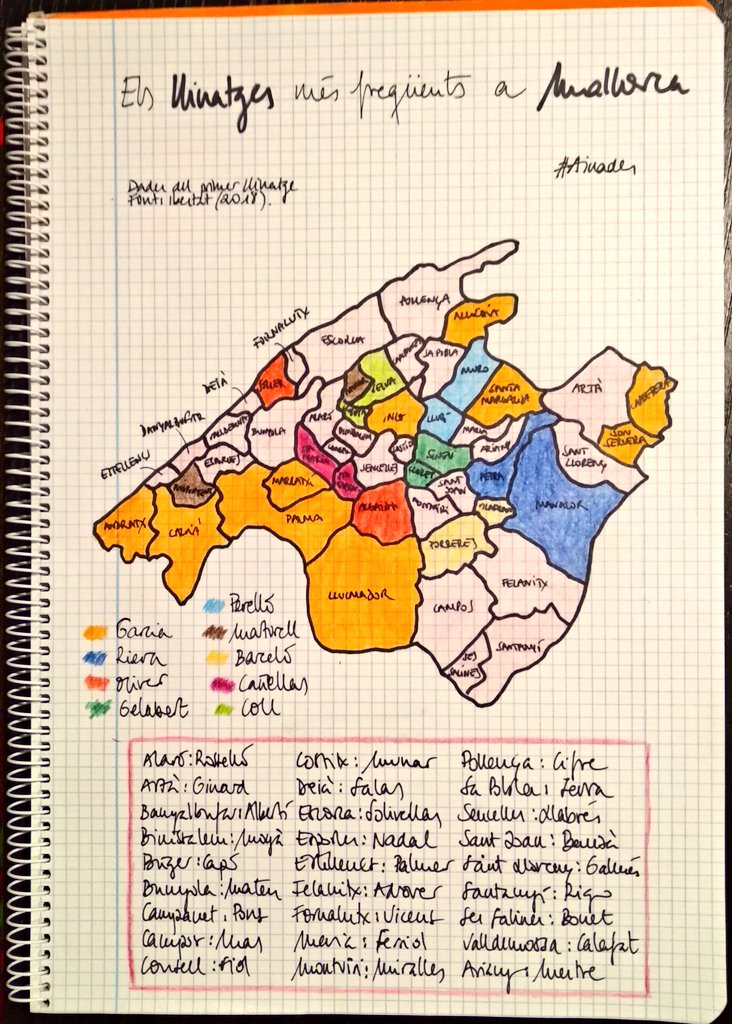 Els llinatges més freqüents a Mallorca
#Ainades
Dades del primer llinatge
Font: ibestat (2018).
POLLENÇA
ALCÚDIA
FORNALUTX
ESCORCA
SA POBLA
MURO
SÓLLER
SELVA
DEIÀ
SANTA MARGALIDA
ARTÀ
CAPDEPERA
INCA
LLUBÍ
ALARÓ
BANYALBUFAR
BUNYOLA
MARIA
ARIANY
SON SERVERA
SINEU
SANT LLORENÇ
ESTELLENCS
STA MARIA
SENCELLES
LLORET
PETRA
SANT JOAN
MANACOR
MARRATXÍ
ANDRATX
CALVIÀ
PALMA
ALGAIDA
VILAFRANCA
PORRERES
LLUCMAJOR
FELANITX
CAMPOS
SANTANYÍ
SES SALINES
Garcia
Riera
Oliver
Gelabert
Perelló
Martorell
Barceló
Cañellas
Coll
Alaró: Rosselló
Artà: Ginard
Banyalbufar: Albertí
Binissalem: Moyà
Búger: Capó
Bunyola: Mateu
Campanet: Pons
Campos: Mas
Consell: Fiol
Costitx: Munar
Deià: Salas
Escorca: Solivellas
Esporles: Nadal
Estellencs: Palmer
Felanitx: Adrover
Fornalutx: Vicens
Maria: Ferriol
Montuïri: Miralles
Pollença: Cifre
Sa Pobla: Serra
Sencelles: Llabrés
Sant Joan: Bauzà
Sant Llorenç: Galmés
Santanyí: Rigo
Ses Salines: Bonet
Valldemossa: Calafat
Ariany: Mestre